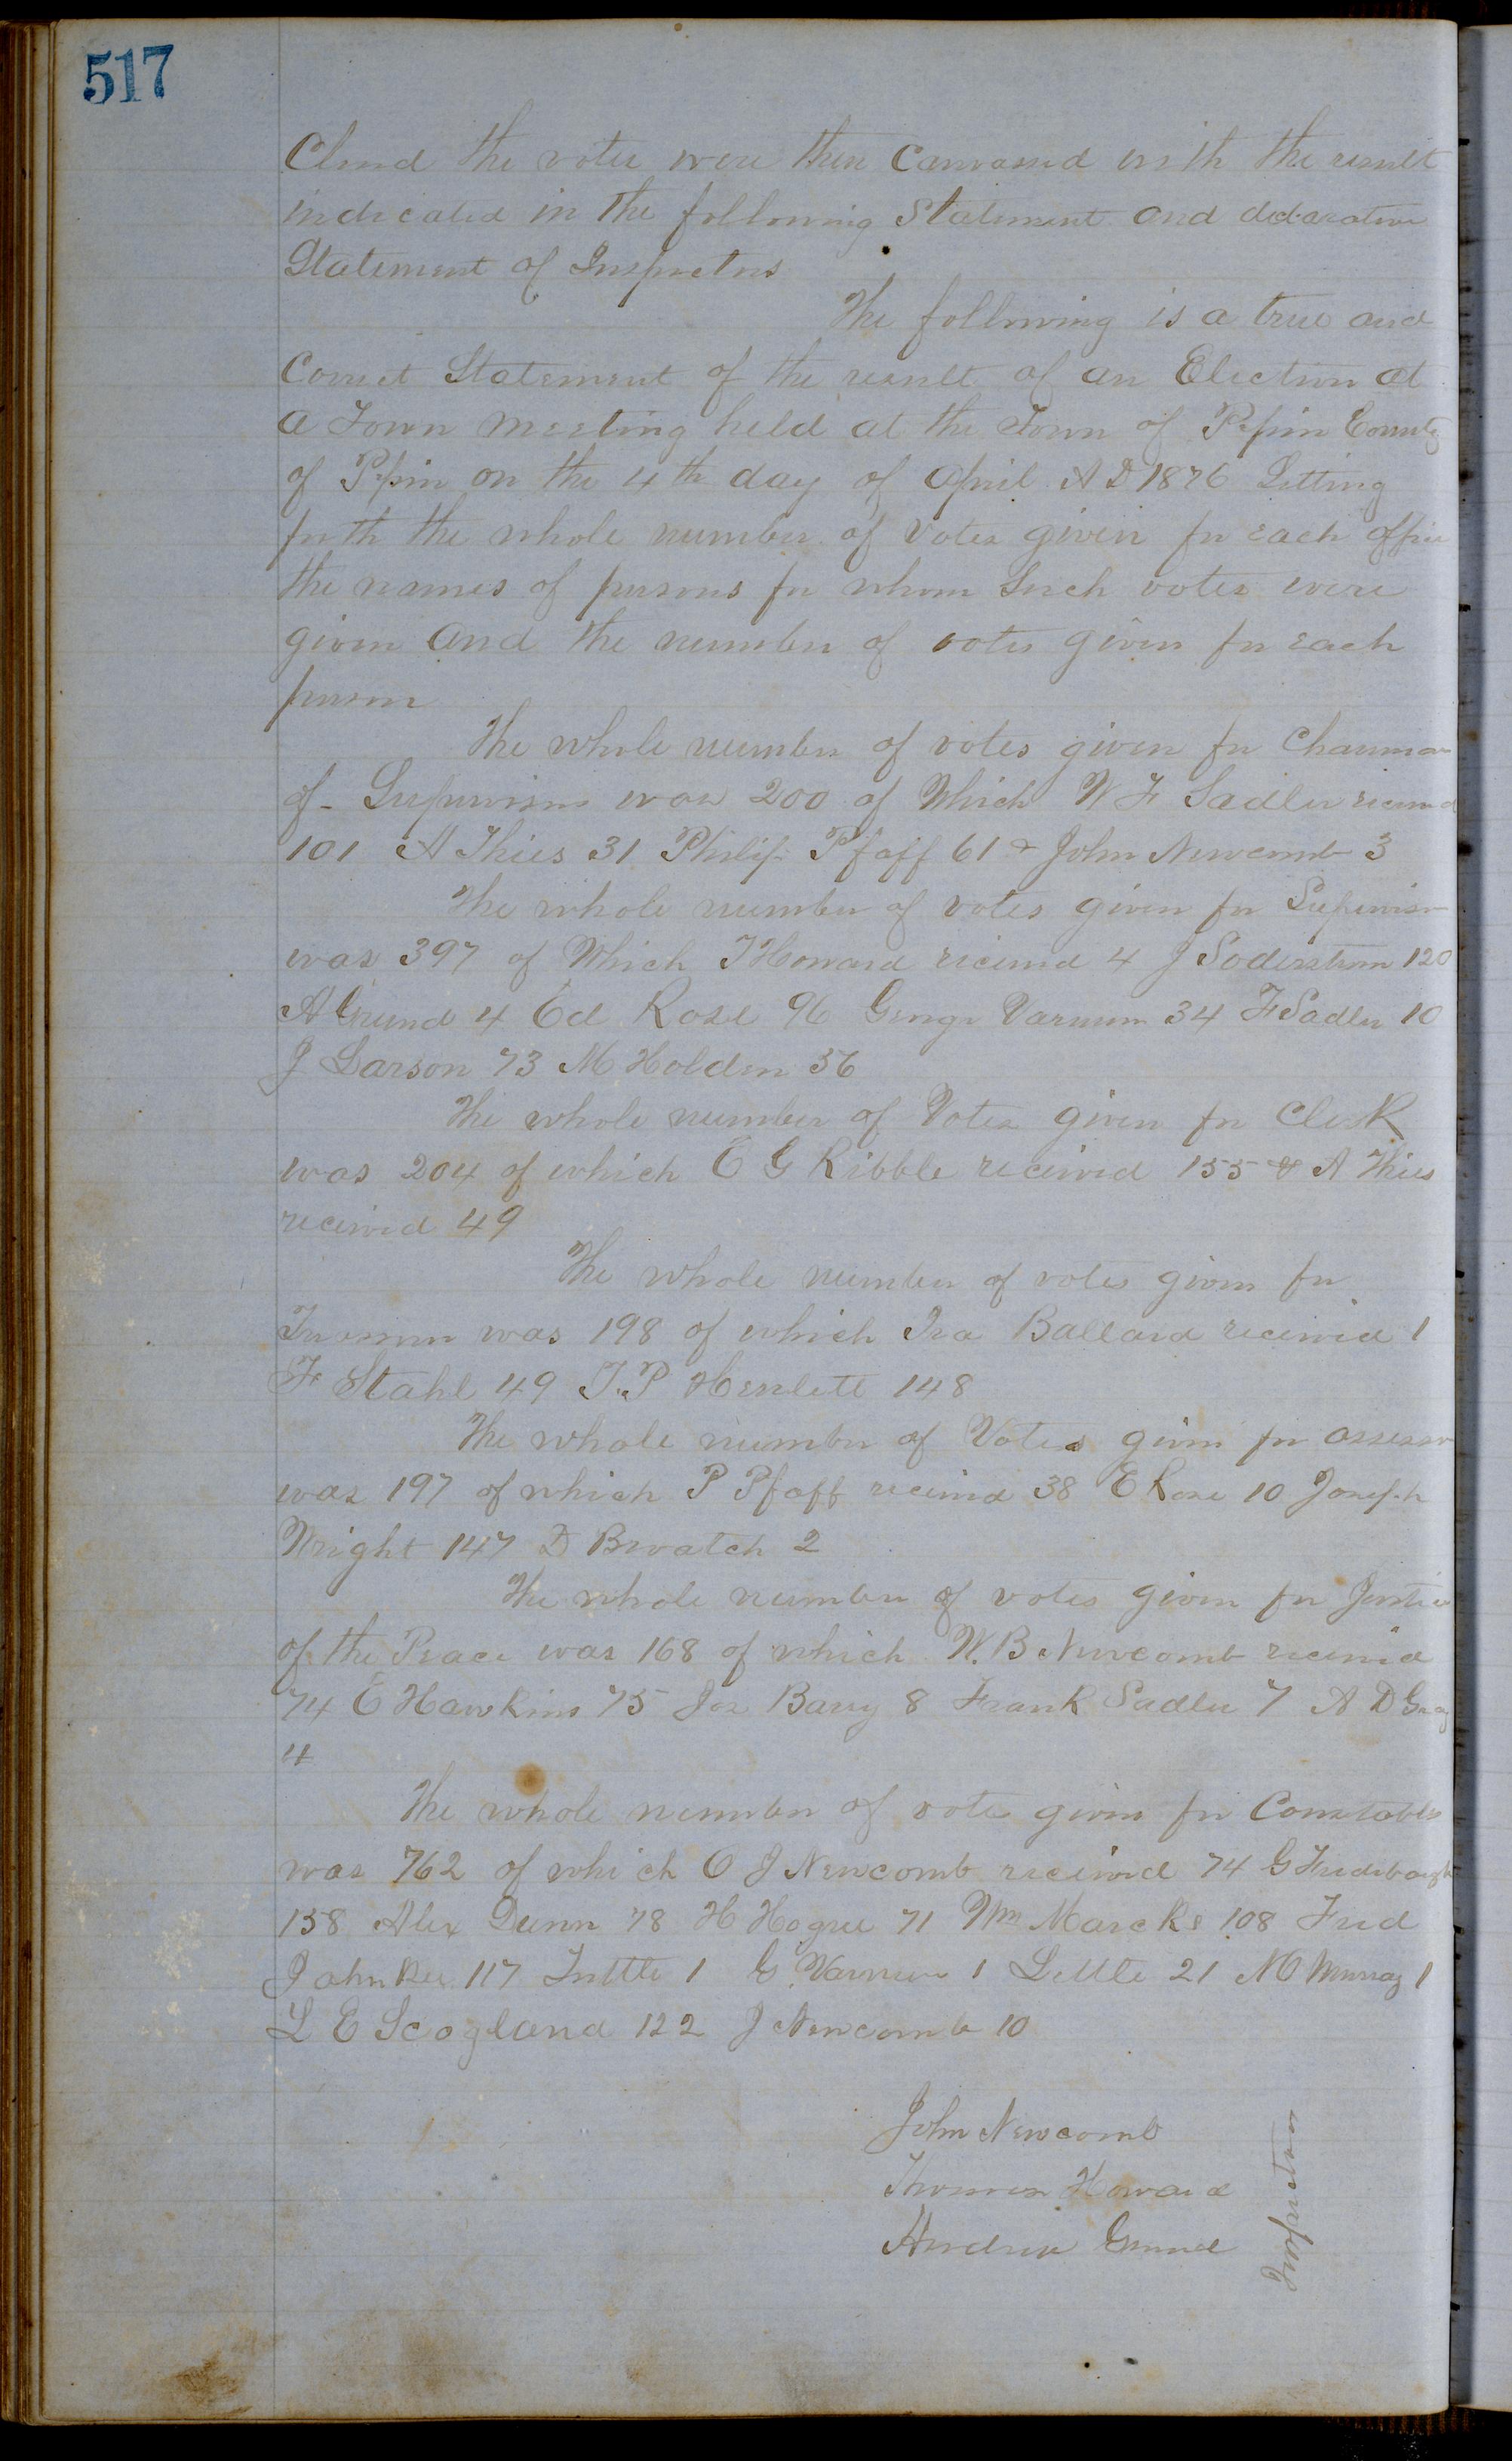 517
Closed the votes were then Canvassed with the result
indicated in the following Statement and declaration
Statement of Inspectors
The following is a true and
Correct Statement of the result of an Election at
a Town meeting held at the Town of Pepin County
of Pepin on the 4th day of April A D 1876 Setting
forth the whole number of votes given for each office
the names of persons for whom Such votes were
given and the number of votes given for each
person
The whole number of votes given for Chairman
of Supervisors was 200 of Which W F Sadler received
101 A Thies 31 Philip Pfaff 61 & John Newcomb 3
The whole number of votes given for Supervisor
was 397 of Which T Howard received 4 J Soderstrom 120
A Grund 4 Ed Rose 96 George Varnum 34 F Sadler 10
J Larson 73 M Holden 56
The whole number of Votes given for Clerk
was 204 of which E G Ribble received 155 & A Thies
received 49
The whole number of votes given for
Treasurer was 198 of which Ira Ballard received 1
F Stahl 49 T.P Hewlett 148
The whole number of Votes given for assessor
was 197 of which P Pfaff received 38 E Rose 10 Joseph
Wright 147 D 2
The whole number of votes given for Justice
of the Peace was 168 of which W.B Newcomb received
74 E Hawkins 75 Jos Barry 8 Frank Sadler 7 A D Gray
4
The whole number of votes given for Constables
was 762 of which O J Newcomb received 74 G
158 Alex Dunn 78 H Hogue 71 Wm Marcks 108 Fred
Jahnke 117 Tuttle 1 G. Varnum 1 Little 21 Murray 1
L E Scogland 122 J Newcomb 10
John Newcomb
Thomas Howard
Andrew Grund
Inspectors